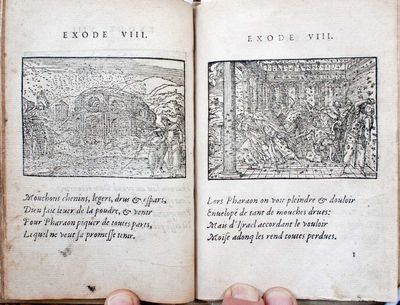 EXODE VIII.
Mouchons chenins, legers, drus & espars,
Dieu fait leuer de la poudre, & venir
Pour Pharaon piquer de toutes parts,
Lequel ne veut sa promesse tenir.
EXODE VIII.
Lors Pharaon on voit pleindre & douloir
Enuelopé de tant de mouches drues:
Mais d'Israel accordant le vouloir
Moïse adonq les rend toutes perdues.